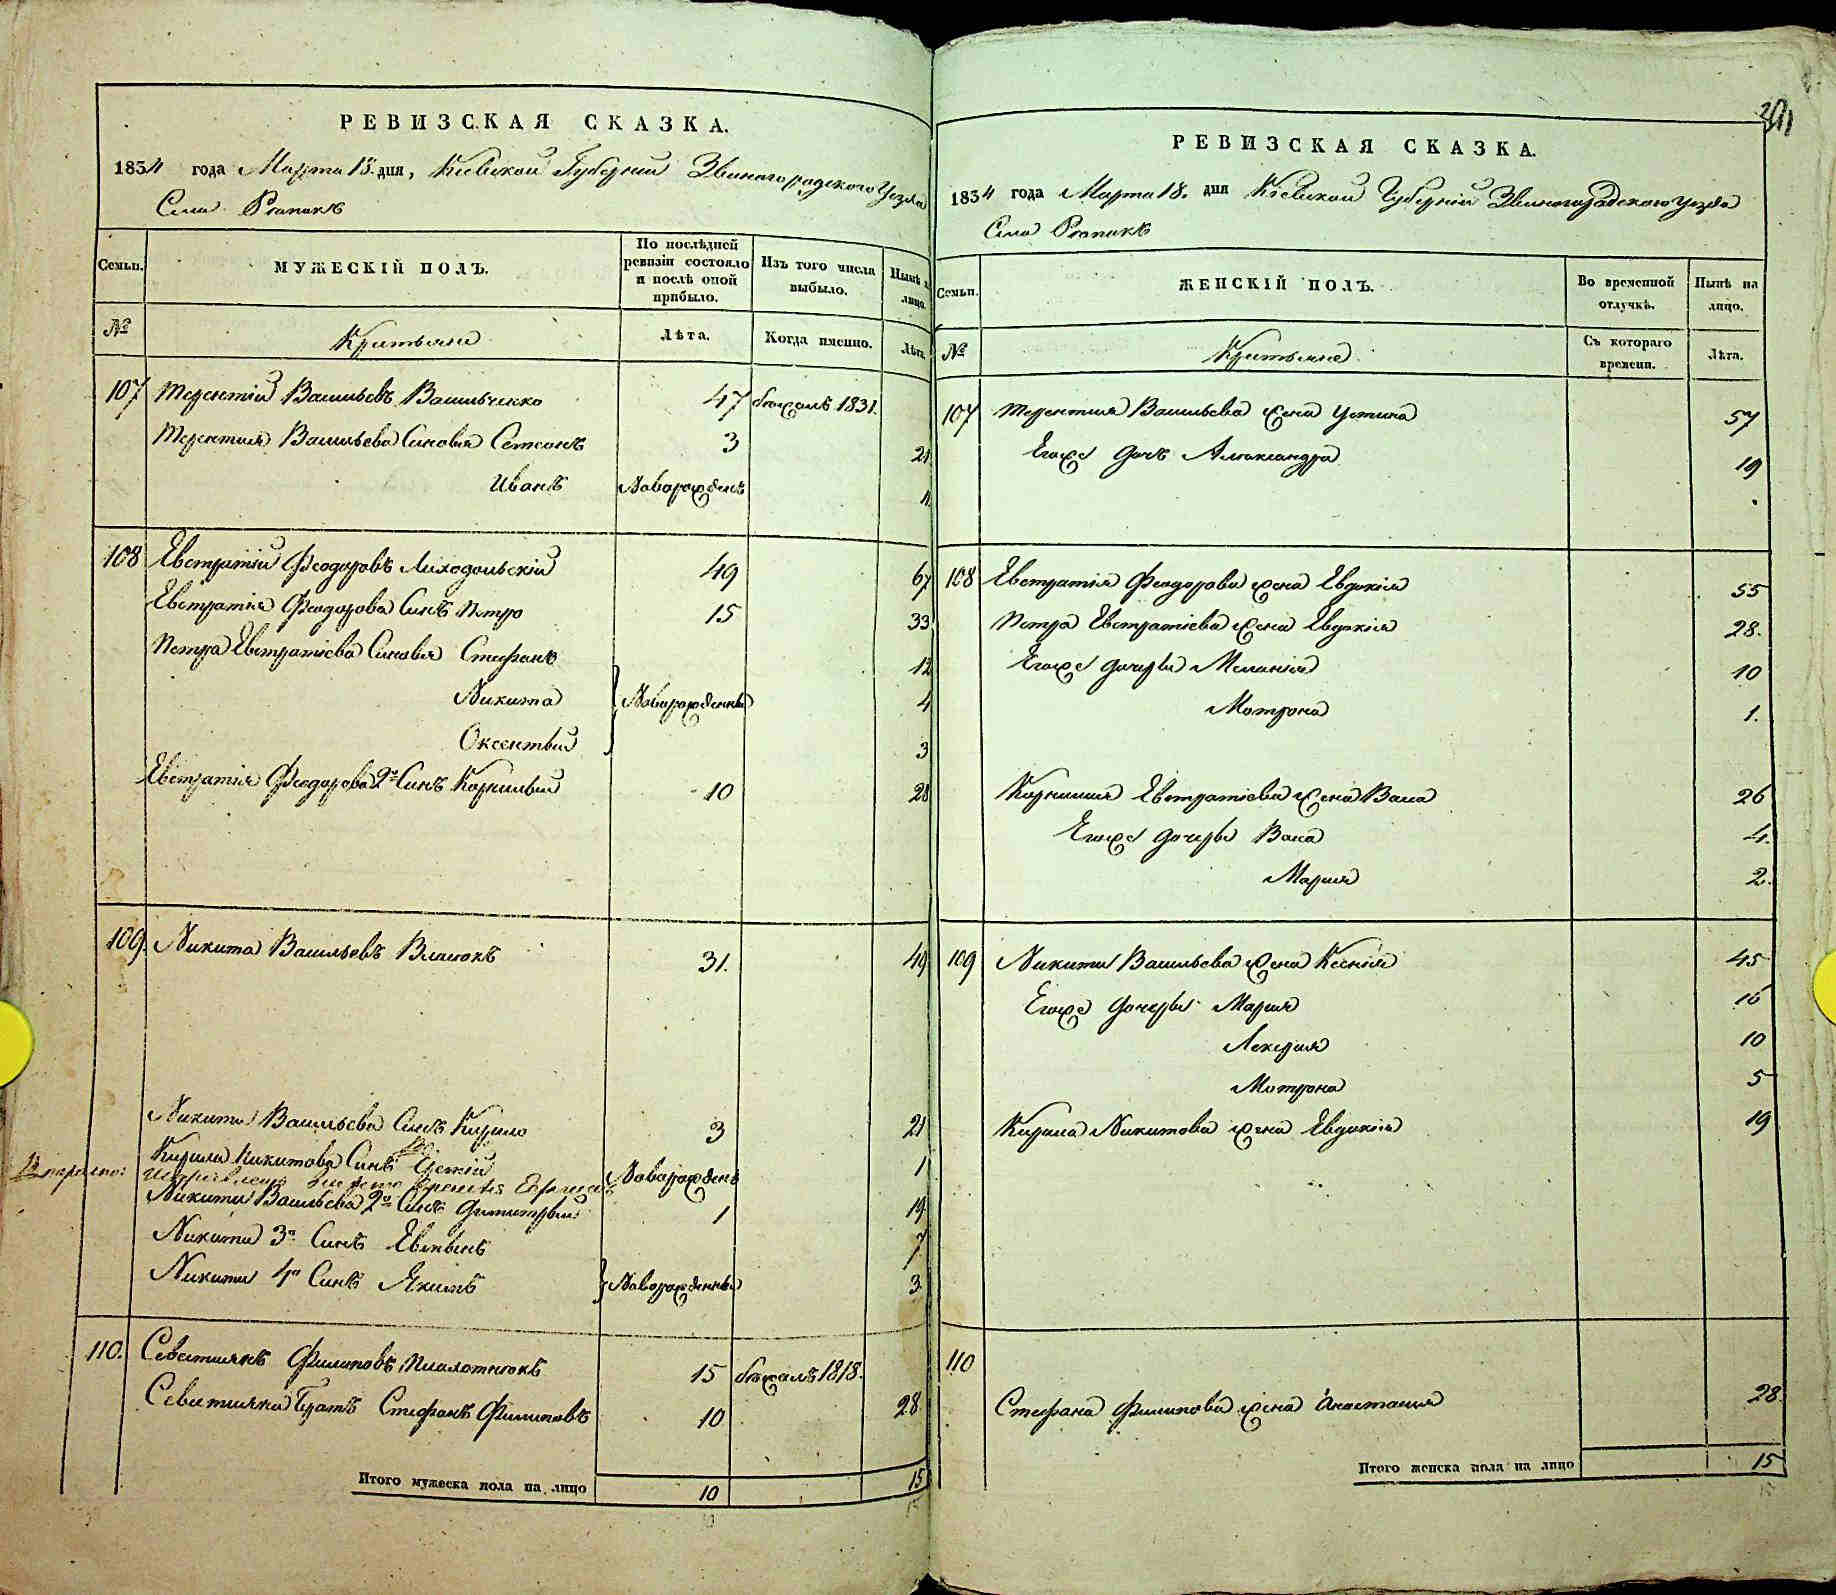 РЕВИЗСКАЯ СКАЗКА.
1834 года Марта 18. дня, Кіевской Губерніи Звиногородского Уезда
Села Рыпокъ
Семьи.
МУЖЕСКІЙ ПОЛЪ.
По послѣдней ревизіи состояло и послѣ оной прибыло.
Изъ того числа выбыло.
Нынѣ на лицо.
№
Крестьяне
Лѣта.
Когда именно.
Лѣта.
107 Терентій Васильевъ Васильченко 47 бежалъ 1831.
Терентия Васильева Синовья Семенъ 3 21
Иванъ Новорожденъ
108 Евстратій Феодоровъ Лиходольскій 49 67
Евстратія Феодорова Синъ Петро 15 33
Петра Евстратіева Синовья Стефанъ 12
Никита Новорожденны 4
Оксентый 3
Евстратія Феодорова 2й Синъ Корнилый 10 28
109. Никита Васильевъ Власюкъ 31. 49
Никити Васильева Синъ Кирило 3 21
Кирила Никитова Синъ Новорожденъ 1
Никити Васильева 2й Синъ Димитрый 1 19
Никити 3й Синъ 7
Никити 4й Синъ Якимъ Новорожденны 3
110. Севастиянъ Филиповъ Палатнюкъ 15 бежалъ 1818.
Севастияна Братъ Стефанъ Филиповъ 10 28
Итого мужеска пола на лицо 10 15
РЕВИЗСКАЯ СКАЗКА.
1834 года Марта 18. дня Кіевской Губерніи Звиногородского Уезда
Села Рыпокъ
Семьи.
ЖЕНСКІЙ ПОЛЪ.
Во временной отлучкѣ.
Нынѣ на лицо.
№
Крестьяне
Съ котораго времени.
Лѣта.
107 Терентия Васильева жена Устина 57
Егоже дочь Александра 19
108 Евстратія Феодорова жена Евдокія 55
Петра Евстратіева жена Евдокія 28.
Егоже дочеры Меланія 10
Мотрона 1.
Корнилия Евстратіева жена Васа 26
Егоже дочеры Васа 4.
Мария 2.
109 Никити Васильева жена Ксенія 45
Егоже дочеры Мария 16
Лекерия 10
Мотрона 5
Кирила Никитова жена Евдокія 19
110
Стефана Филипова жена Анастасия 28.
Итого женска пола на лицо 15